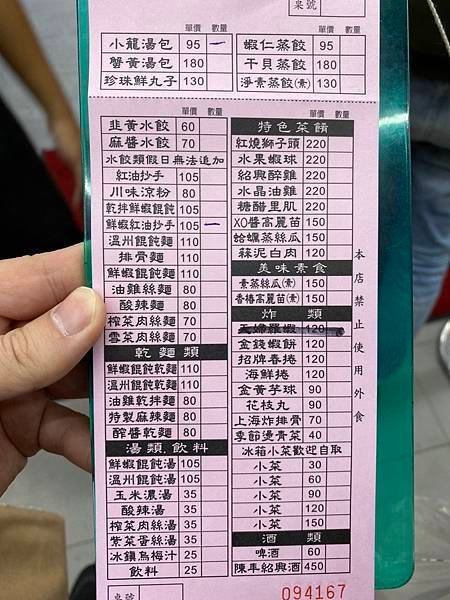 桌號
單價 數量
小龍湯包 95 一
蟹黃湯包 180
珍珠鮮丸子 130
單價 數量
蝦仁蒸餃 95
干貝蒸餃 180
淨素蒸餃(素) 130
單價 數量
韭黃水餃 60
麻醬水餃 70
水餃類假日無法追加
紅油抄手 105
川味涼粉 80
乾拌鮮蝦餛飩 105
鮮蝦紅油抄手 105 一
溫州餛飩麵 110
排骨麵 110
鮮蝦餛飩麵 110
油雞絲麵 80
酸辣麵 80
榨菜肉絲麵 70
雪菜肉絲麵 70
乾麵類
鮮蝦餛飩乾麵 110
溫州餛飩乾麵 110
油雞乾拌麵 80
特製麻辣麵 80
醡醬乾麵 80
湯類.飲料
鮮蝦餛飩湯 105
溫州餛飩湯 105
玉米濃湯 35
酸辣湯 35
榨菜肉絲湯 35
紫菜蛋絲湯 35
冰鎮烏梅汁 25
飲料 25
桌號
單價 數量
特色菜餚
紅燒獅子頭 220
水果蝦球 220
紹興醉雞 220
水晶油雞 220
糖醋里肌 220
XO醬高麗苗 150
蛤蠣蒸絲瓜 150
蒜泥白肉 120
美味素食
素蒸絲瓜(素) 150
香椿高麗苗(素) 150
炸類
120
金錢蝦餅 120
招牌春捲 120
海鮮捲 120
金黃芋球 90
花枝丸 90
上海炸排骨 70
季節燙青菜 40
冰箱小菜歡迎自取
小菜 30
小菜 60
小菜 90
小菜 120
小菜 150
酒類
啤酒 60
陳年紹興酒 450
本店禁止使用外食
094167